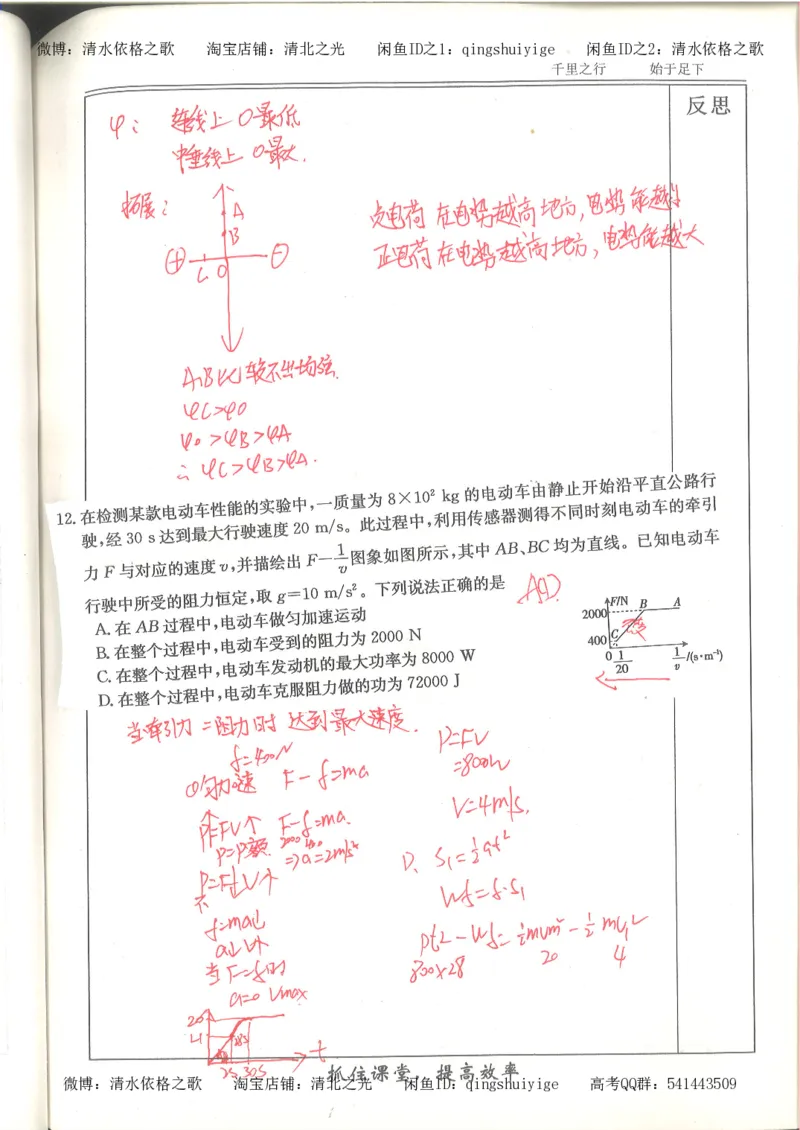 微博：清水依格之歌 淘宝店铺：清北之光 闲鱼ID之1：qingshuiyige 闲鱼ID之2：清水依格之歌
千里之行 始于足下
反思
φ： 连线上 O最低
中垂线上 O最大.
拓展：
A
B
⊕ C O ⊖
点电荷 在电势越高地方，电势能越
正电荷 在电势越高地方，电势能越大
A,B比较不出场强.
φC>φO
φO>φB>φA
∴ φC>φB>φA.
12. 在检测某款电动车性能的实验中，一质量为 8×10² kg 的电动车由静止开始沿平直公路行
驶，经 30 s 达到最大行驶速度 20 m/s。此过程中，利用传感器测得不同时刻电动车的牵引
力 F 与对应的速度 v，并描绘出 F—1/v 图象如图所示，其中 AB、BC 均为直线。已知电动车
行驶中所受的阻力恒定，取 g=10 m/s²。下列说法正确的是
AD
A. 在 AB 过程中，电动车做匀加速运动
B. 在整个过程中，电动车受到的阻力为 2000 N
C. 在整个过程中，电动车发动机的最大功率为 8000 W
D. 在整个过程中，电动车克服阻力做的功为 72000 J
F/N B A
2000
400 C
0 1/20 1/v /(s·m⁻¹)
当牵引力=阻力时 达到最大速度.
f=400N
①匀加速 F-f=ma
P=FV↑ F-f=ma.
2000 400
P=P额 ⇒a=2m/s²
P=F↓V↑
不
f=ma↓
a↓ v↑
当F=f时
a=0 Vmax
20
4
28s
2s 30s t
P=FV
=8000W
V=4m/s.
D、S₁=½at²
Wf=f·S₁
Pt2-Wf=½mvm²-½mv₁²
800×28 20 4
抓住课堂，提高效率
微博：清水依格之歌 淘宝店铺：清北之光 闲鱼ID：qingshuiyige 高考QQ群：541443509